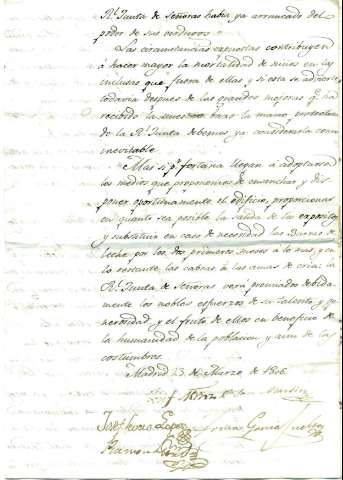 Rl. Junta de Señoras habia ya arrancado del
poder de sus verdugos.
Las circunstancias expuestas contribuyen
á hacer mayor la mortalidad de niños en las
inclusas que fuera de ellas y si esta se advierte
todavia despues de las grandes mejoras qe. ha
recibido la nuestra baxo la mano protectora
de la Rl. Junta debemos ya considerarla como
inevitable.
Mas si pr. fortuna llegan á adoptarse
los medios que proponemos de ensanchar y dis-
poner oportunamente el edificio, proporcionar
en quanto sea posible la salida de los expositos
y substituir en caso de necesidad las Burras de
leche por los dos primeros meses á lo mas, y en
lo restante las cabras á las amas de cria: la
Rl. Junta de Señoras verá premiados debida
mente los nobles esfuerzos de su talento y ge
nerosidad y el fruto de ellos en beneficio de
la humanidad de la poblacion y aun de las
costumbres.
Madrid 23 de Marzo de 1806
Sn. Martin
Garcia
Josef Lopez
Ramon